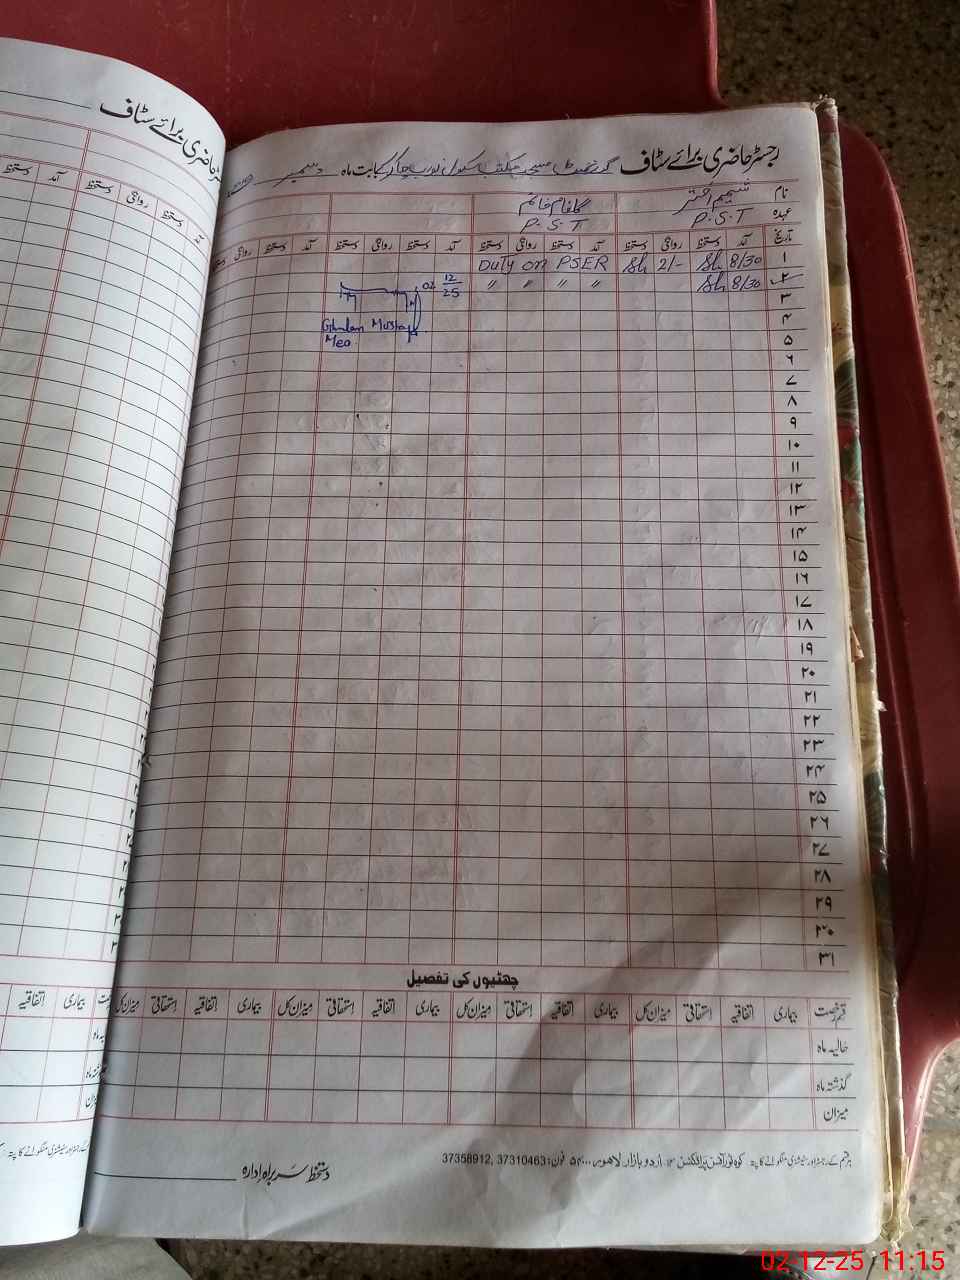 رجسٹر حاضری برائے سٹاف گورنمنٹ مسجد مکتب سکول بابت ماہ دسمبر
نام شمیم اختر گلفام خانم
عہدہ P.S.T P.S.T
تاریخ آمد دستخط روانگی دستخط آمد دستخط روانگی دستخط آمد دستخط روانگی دستخط آمد دستخط روانگی
۱ 8/30 Sh 2/- Sh Duty on PSER
۲ 8/30 Sh " " " "
02 12/25
۳
Ghulam Mustafa
۴
Meo
۵
۶
۷
۸
۹
۱۰
۱۱
۱۲
۱۳
۱۴
۱۵
۱۶
۱۷
۱۸
۱۹
۲۰
۲۱
۲۲
۲۳
۲۴
۲۵
۲۶
۲۷
۲۸
۲۹
۳۰
۳۱
چھٹیوں کی تفصیل
قسم رخصت بیماری اتفاقیہ استحقاقی میزان کل بیماری اتفاقیہ استحقاقی میزان کل بیماری اتفاقیہ استحقاقی میزان کل بیماری اتفاقیہ استحقاقی میزان کل
حالیہ ماہ
گذشتہ ماہ
میزان
ہر قسم کے رجسٹر اور سٹیشنری منگوانے کا پتہ۔ کوہ نور آفسٹ پرنٹنگ اردو بازار لاہور فون: 37310463, 37358912
دستخط سربراہ ادارہ
برائے سٹاف
02-12-25 11:15